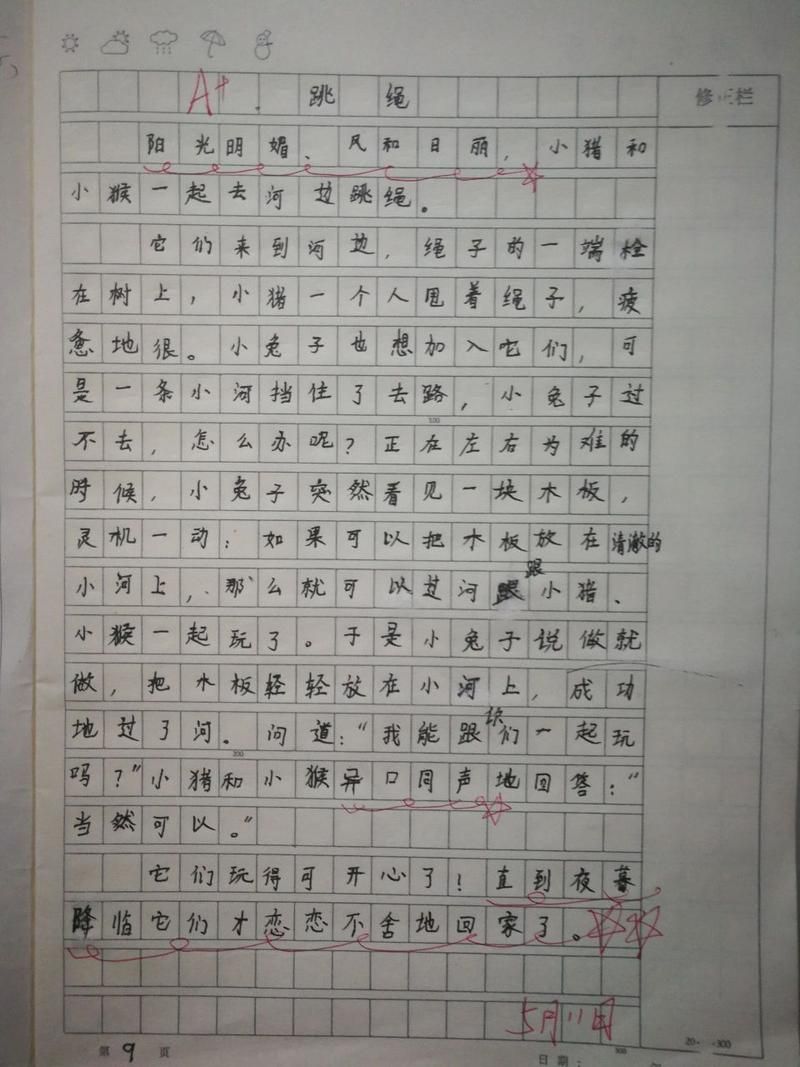 A+
跳绳
修正栏
阳光明媚、风和日丽，小猪和
小猴一起去河边跳绳。
它们来到河边，绳子的一端栓
在树上，小猪一个人甩着绳子，疲
惫地很。小兔子也想加入它们，可
是一条小河挡住了去路，小兔子过
100
不去，怎么办呢？正在左右为难的
时候，小兔子突然看见一块木板，
灵机一动：如果可以把木板放在清澈的
小河上，那么就可以过河跟小猪、
小猴一起玩了。于是小兔子说做就
做，把木板轻轻放在小河上，成功
地过了河。问道：“我能跟你们一起玩
200
吗？”小猪和小猴异口同声地回答：“
当然可以。”
它们玩得可开心了！直到夜暮
降临它们才恋恋不舍地回家了。
5月11日
300
20
300
第9页
日期：